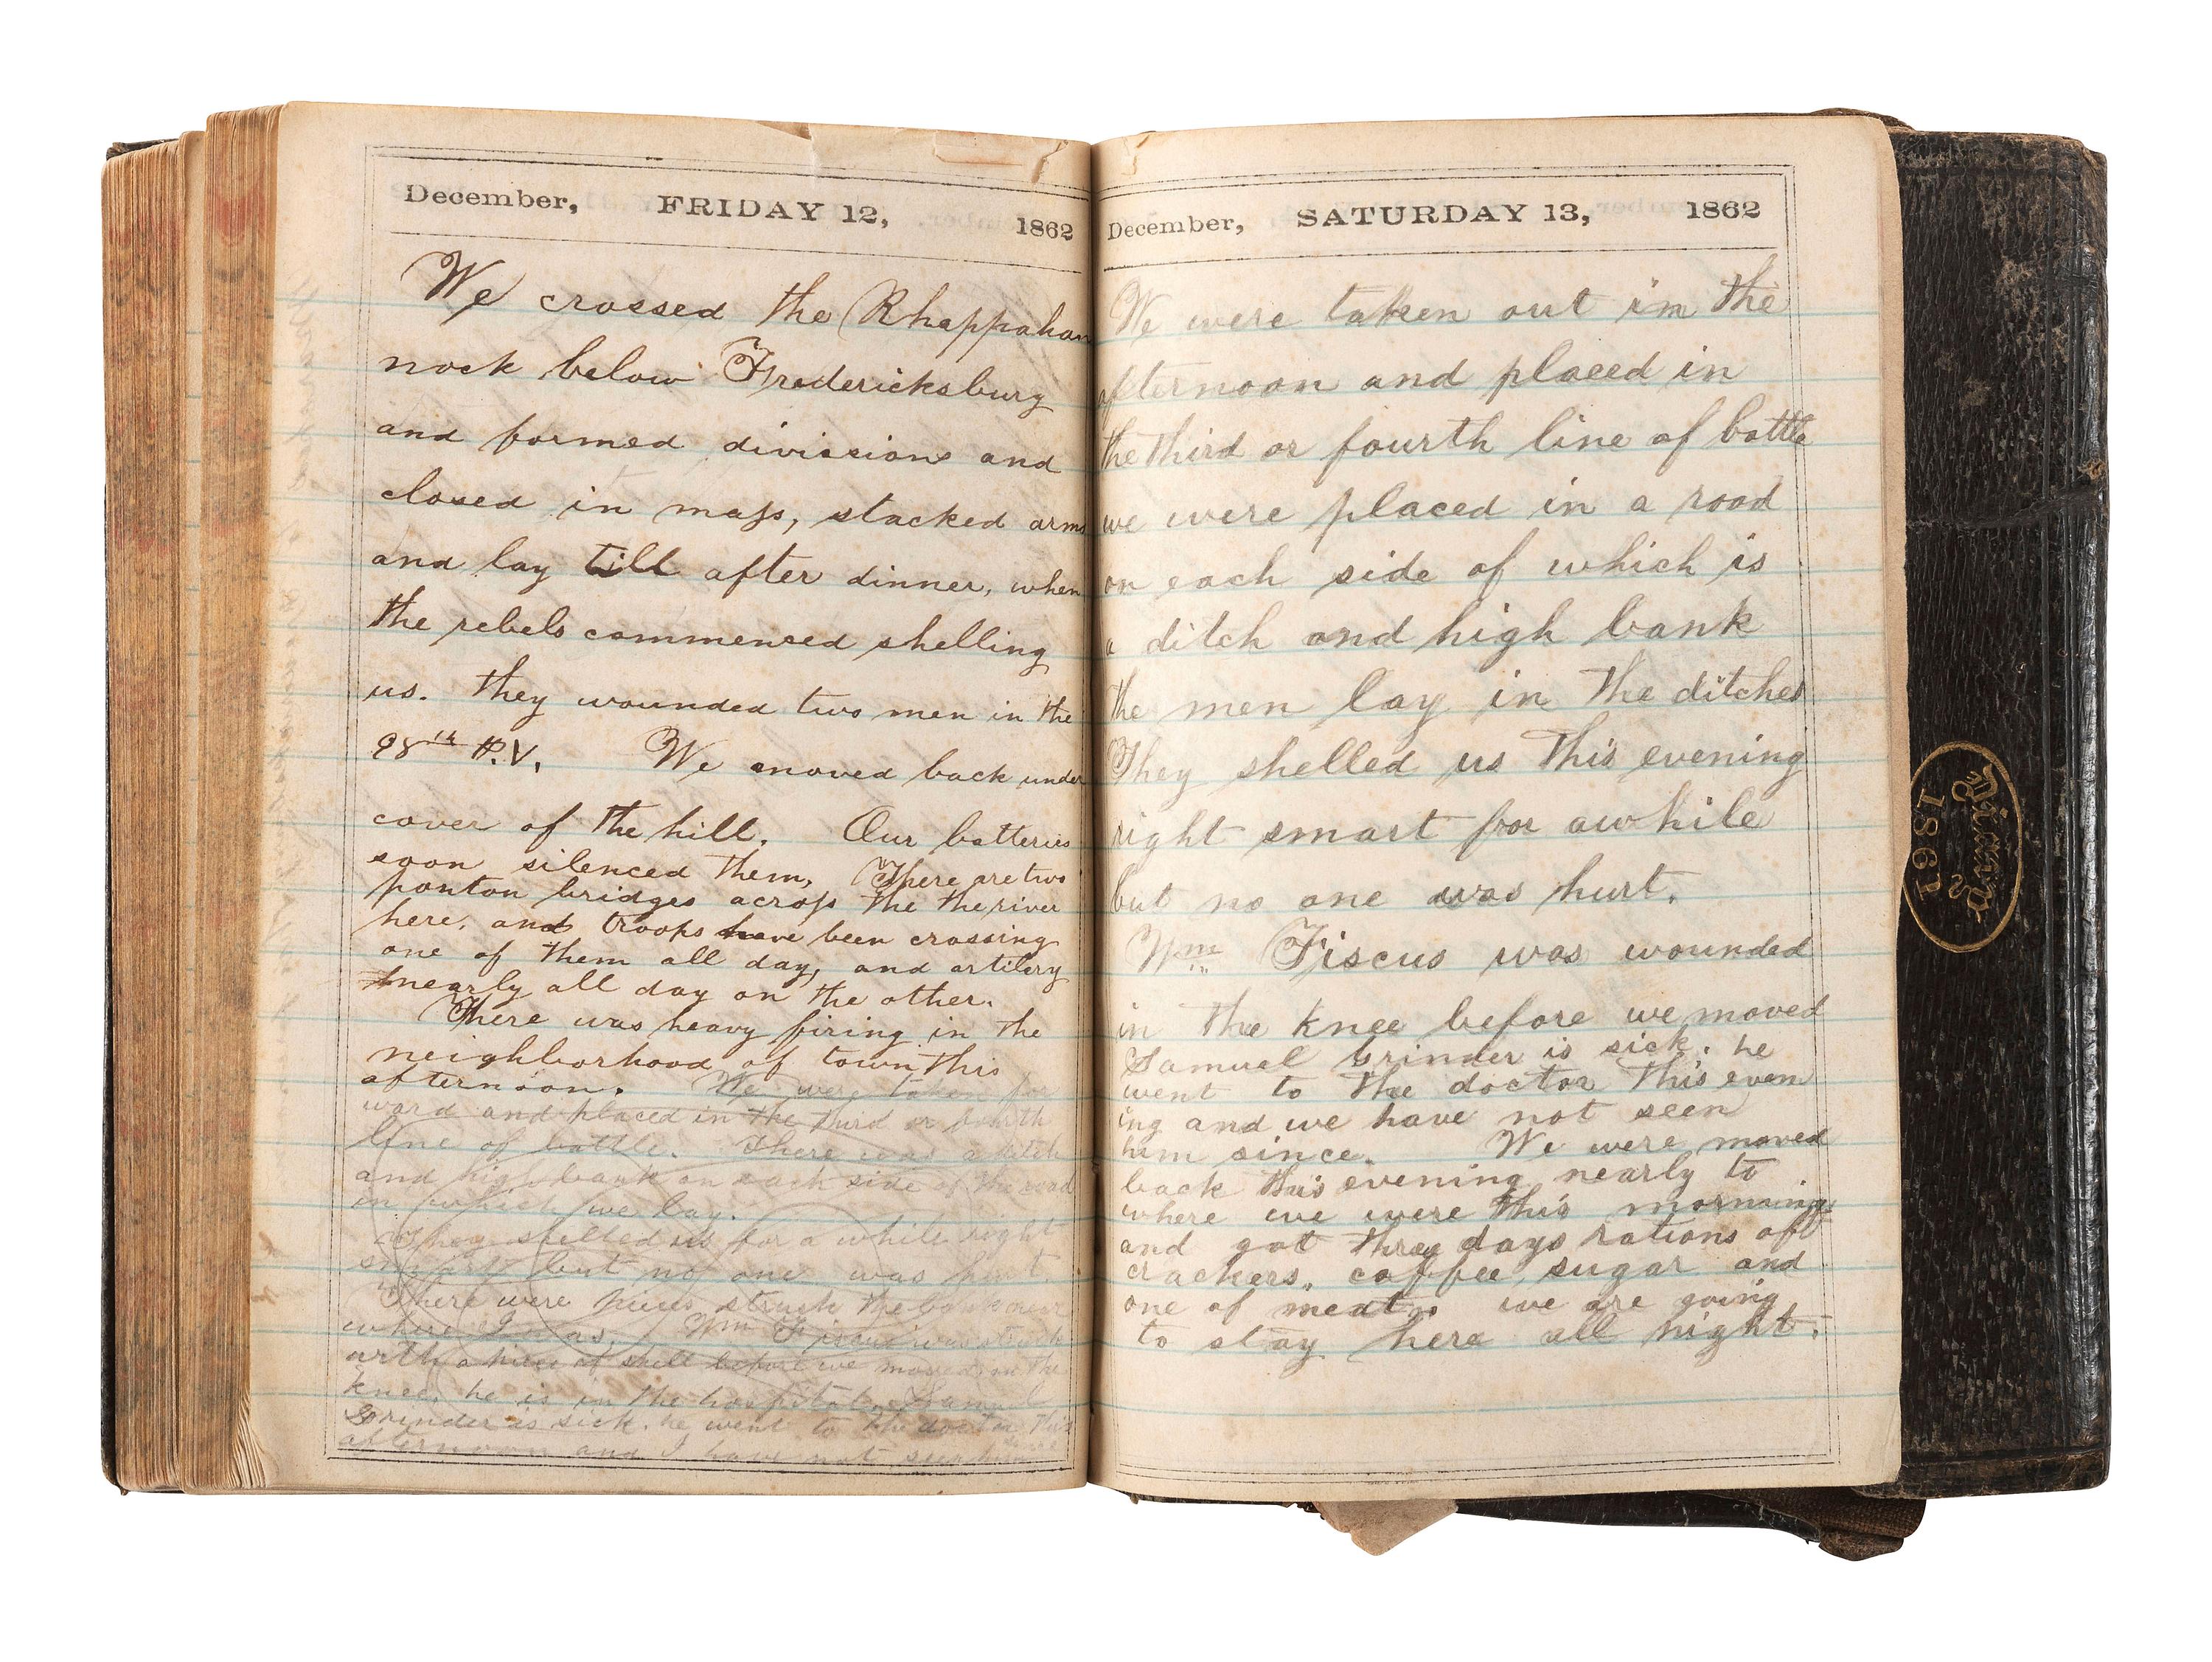 December, FRIDAY 12, 1862
We crossed the Rhappahan
nock below Fredericksburg
and formed divisions and
closed in mass, stacked arms
and lay till after dinner, when
the rebels commenced shelling
us. they wounded two men in the
98th P.V. We moved back under
cover of the hill. Our batteries
soon silenced them, There are two
ponton bridges across the the river
here, and troops have been crossing
one of them all day, and artilery
nearly all day on the other.
There was heavy firing in the
neighborhood of town this
afternoon. We were taken for
ward and placed in the third or fourth
line of battle. There was a ditch
and high bank on each side of the road
in which we lay.
They shelled us for a while right
smart but no one was hurt.
There were pieces struck the bank near
where I was. Wm Fiscus was struck
with a piece of shell before we moved in the
knee. he is in the hospital. Samuel
Grinder is sick. he went to the doctor this
afternoon and I have not seen him since
December, SATURDAY 13, 1862
We were taken out in the
afternoon and placed in
the third or fourth line of battle
we were placed in a road
on each side of which is
a ditch and high bank
the men lay in the ditches
They shelled us this evening
right smart for awhile
but no one was hurt.
Wm Fiscus was wounded
in the knee before we moved
Samuel Grinder is sick. he
went to the doctor this even
ing and we have not seen
him since. We were moved
back this evening nearly to
where we were this morning
and got three days rations of
crackers, coffee, sugar and
one of meat. we are going
to stay here all night.
Diary
1861